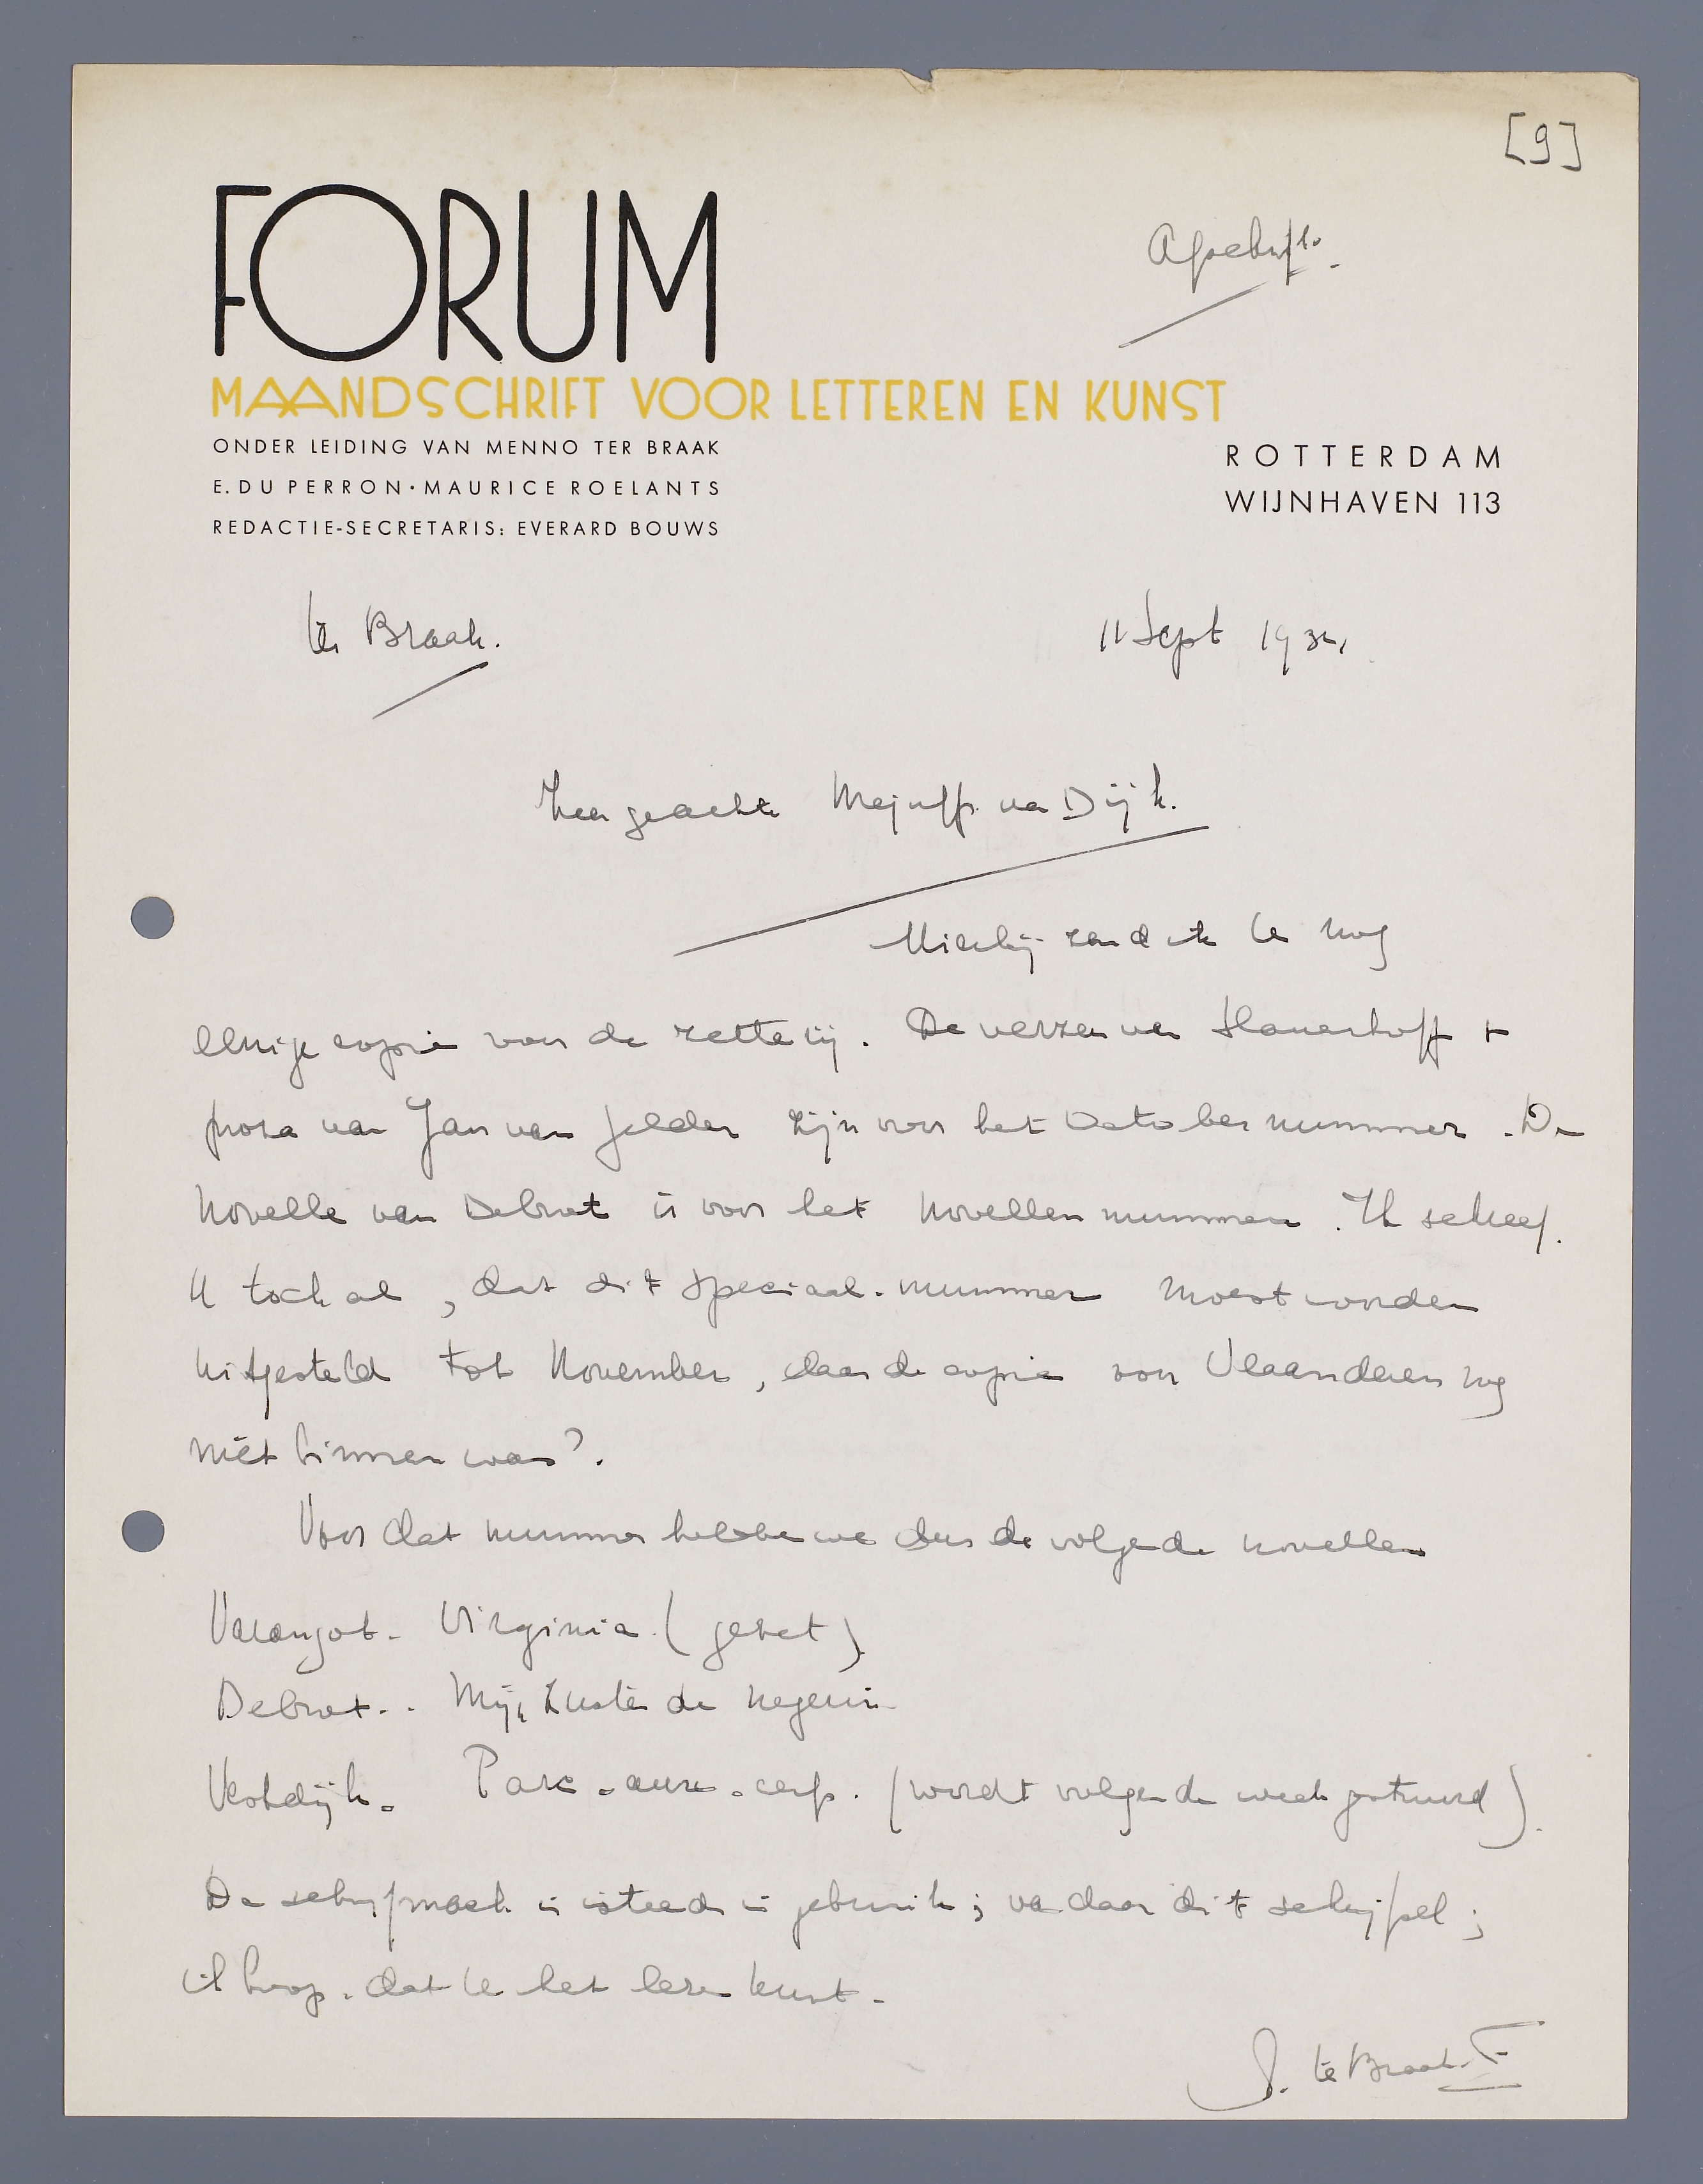 [9]
Afschrift.
FORUM
MAANDSCHRIFT VOOR LETTEREN EN KUNST
ONDER LEIDING VAN MENNO TER BRAAK
E. DU PERRON · MAURICE ROELANTS
REDACTIE-SECRETARIS: EVERARD BOUWS
ROTTERDAM
WIJNHAVEN 113
ter Braak.
11 Sept 1934
Zeer geachte Mejuffr. van Dijk.
Hierbij zend ik U nog
eenige copie voor de zetterij. De verzen van Slauerhoff +
proza van Jan van Gelder zijn voor het October nummer. De
novelle van Debrot is voor het novellennummer. Ik schreef
U toch al, dat dit speciaal-nummer moest worden
uitgesteld tot November, daar de copie von Vlaanderen nog
niet binnen was?.
Voor dat nummer hebben we dus de volgende novellen
Varangot - Virginia (gezet)
Debrot - . Mijn Zuster de negerin
Vestdijk - Parc-aux-cerfs. (wordt volgende week gestuurd).
De schrijfmach. is steeds in gebruik; vandaar dit schrijfsel;
ik hoop, dat U het lezen kunt.
ter Braak